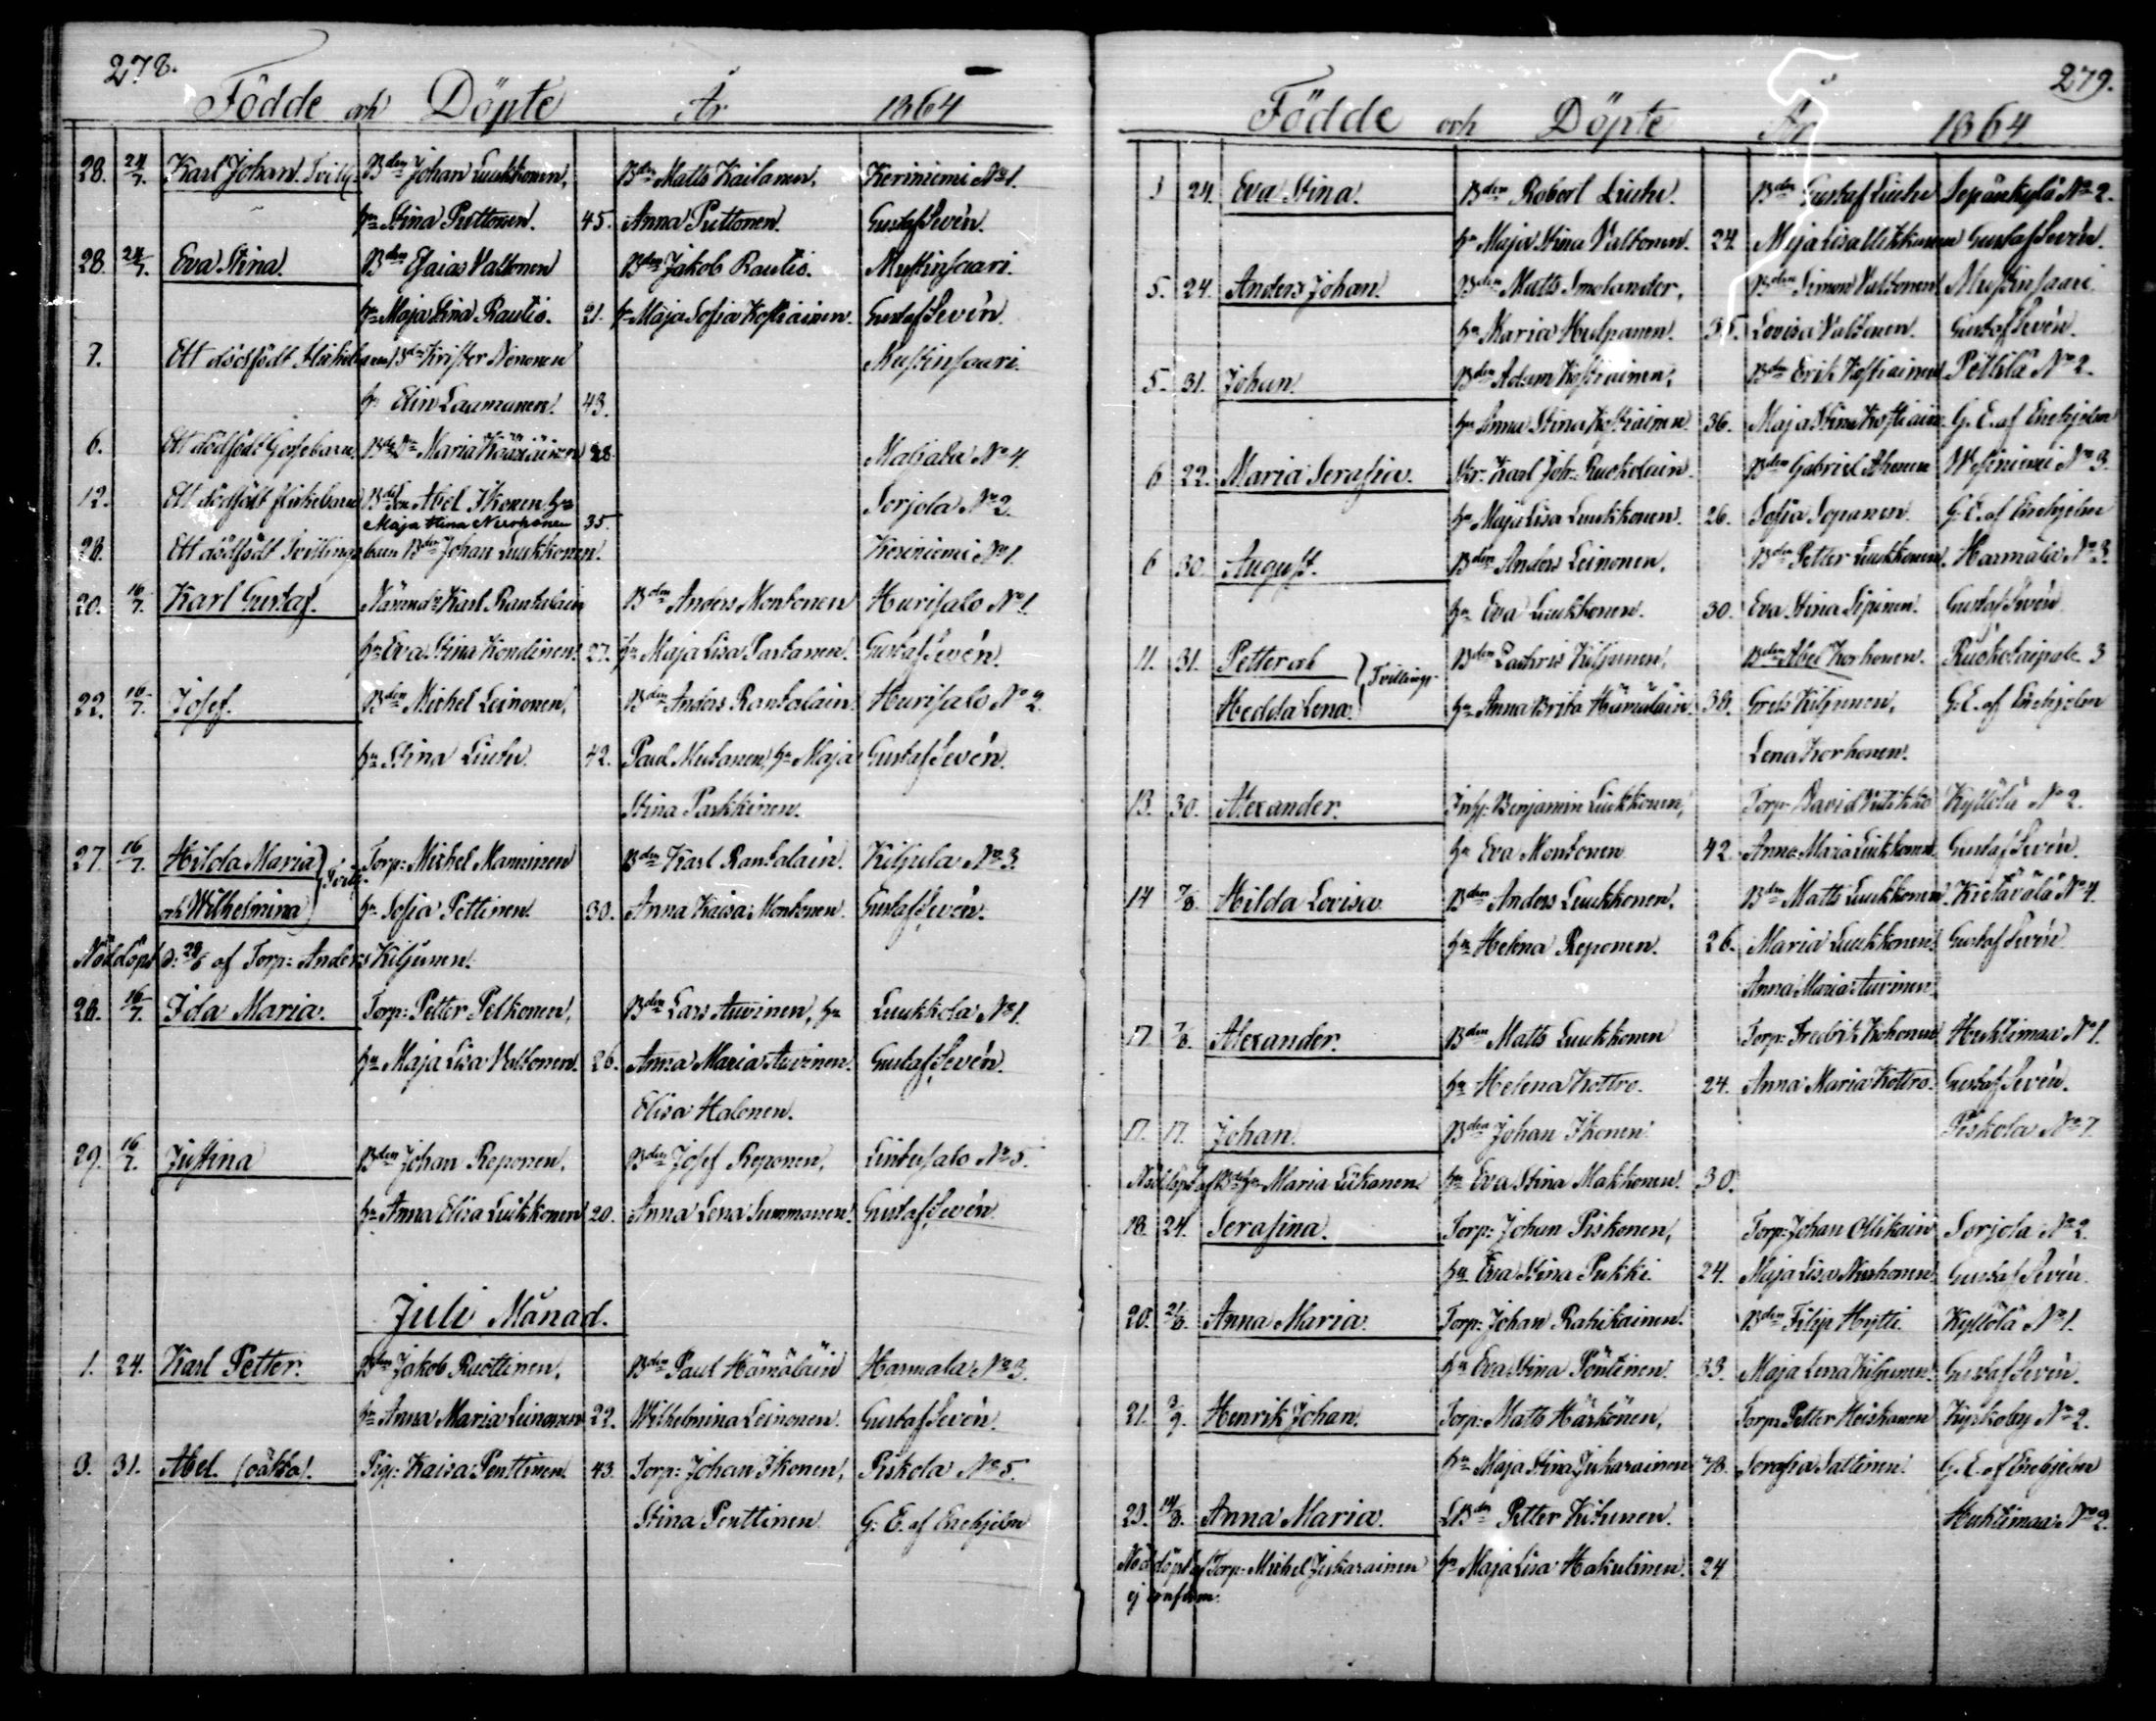 278.
Födde och Döpte År 1864
28. 24/7. Karl Johan. Tvill: Bden Johan Luukkonen, Bden Matts Kailanen, Keriniemi No 1.
hu Stina Puttonen. 45. Anna Puttonen. Gustaf Sevén.
28. 24/7. Eva Stina. Bden Esaias Valtonen Bden Jakob Rautio. Mustinsaari.
hu Maja Stina Rautio. 21. hu Maja Sofia Kostiainen. Gustaf Sevén.
7. Ett dödfödt flickebarn Bden Krister Nenonen Mustinsaari.
hu Elin Laamanen. 43.
6. Ett dödfödt Gossebarn. Maria Kääriäinen 28.
12. Ett dödfödt flickebarn Abel Ikonen hu Sorjola No 2.
Maja Stina Nuorhonen 35.
28. Ett dödfödt Tvillingebarn Bden Johan Luukkonen. Keriniemi No 1.
20. 16/7. Karl Gustaf. Karl Rantalain Bden Anders Montonen Hurisalo No 1.
hu Eva Stina Kondinen. 27. hu Maja Lisa Partanen. Gustaf Sevén.
22. 16/7. Josef. Bden Michel Leinonen, Bden Anders Rantalain Hurisalo No 2.
hu Stina Liuhu 42. Paul Mutanen, hu Maja Gustaf Sevén.
Stina Parkkinen.
27. 16/7. Hilda Maria Tvill: Torp: Michel Manninen Bden Karl Rantalain. Kiljula No 3.
och Wilhelmina hu Sofia Pettinen. 30. Anna Kaisa Montonen. Gustaf Sevén.
Nöddöpt d: 29/6 af Torp: Anders Kiljunen.
28. 16/7. Ida Maria. Torp: Petter Pelkonen, Bden Lars Auvinen, hu Luukkola No 1.
hu Maja Lisa Valtonen. 26. Anna Maria Auvinen. Gustaf Sevén.
Elisa Halonen.
29. 16/7. Justina Bden Johan Reponen, Bden Josef Reponen, Lintusalo No 5.
hu Anna Elisa Luukkonen 20. Anna Lena Summanen. Gustaf Sevén.
Juli Månad.
1. 24. Karl Petter. Bden Jakob Ruottinen, Bden Paul Hämäläin Harmala No 3.
hu Anna Maria Leinonen 22. Wilhelmina Leinonen. Gustaf Sevén.
3. 31. Abel. (oäkta). Pig: Kaisa Penttinen. 43. Torp: Johan Ikonen, Piskola No 5.
Stina Penttinen G: E. af Enehjelm
279.
Födde och Döpte År 1864
3 24. Eva Stina. Bden Robert Liuhu. Bden Gustaf Liuhu Sepänkylä No 2.
hu Maja Stina Valtonen. 24. Maja Lisa Mikkonen Gustaf Sevén.
5. 24. Anders Johan. Bden Matts Smolander, Bden Simon Valtonen Mustinsaari.
hu Maria Huspanen. 35. Lovisa Valtonen. Gustaf Sevén.
5. 31. Johan. Bden Adam Kostiainen, Bden Erik Kostiainen Pettilä No 2.
hu Anna Stina Kostiainen 36. Maja Stina Kostiain. G. E. af Enehjelm
6 22. Maria Serafia. Skr: Karl Joh: Ruokolain. Bden Gabriel Ahonen Wesiniemi No 3.
hu Maja Lisa Luukkonen. 26. Sofia Sopanen. G. E. af Enehjelm
6 30. August. Bden Anders Leinonen, Bden Petter Luukkonen, Harmala No 3.
hu Eva Luukkonen. 30. Eva Stina Sipinen. Gustaf Sevén
11. 31. Petter och Tvillingar Bden Zachris Kiljunen, Bden Abel Korhonen. Ruokolaispale 3
Hedda Lena. hu Anna Brita Hämäläin. 38. Greta Kiljunen, G. E. af Enehjelm
Lena Korhonen.
13. 30. Alexander. Inh: Benjamin Luukkonen, Torp: David Kyllölä No 2.
hu Eva Montonen 42. Anna Maria Luukkonen Gustaf Sevén.
14 7/8. Hilda Lovisa Bden Anders Luukkonen, Bden Matts Luukkonen. Kietävälä No 4.
hu Helena Reponen. 26. Maria Luukkonen. Gustaf Sevén
Anna Maria Auvinen
17. 7/8. Alexander. Bden Matts Luukkonen Torp: Fredrik Kohonen Huhtimaa No 1.
hu Helena Kottro. 24. Anna Maria Kottro. Gustaf Sevén.
17. 17. Johan. Bden Johan Ikonen Piskola No 7.
Nöddöpt af Maria Liikanen hu Eva Stina Makkonen. 30.
18. 24. Serafina. Torp: Johan Piskonen, Torp: Johan Ollikain Sorjola No 2.
hu Eva Stina Pukki 24. Maja Lisa Nuorhonen Gustaf Sevén.
20. 21/8. Anna Maria. Torp: Johan Rahikainen. Bden Filip Hytti Kyllölä No 1.
hu Eva Stina Pöntinen. 33. Maja Lena Kiljunen. Gustaf Sevén.
21. 3/9. Henrik Johan. Torp: Matts Härkönen, Torp: Petter Heiskanen Kyrkoby No 2.
hu Maja Stina Jukarainen 48. Serafia Sattinen. G. E. af Enehjelm
23. 14/8. Anna Maria. LBden Petter Kihunen. Huhtimaa No 2.
Nöddöpt af Torp: Michel Jukarainen hu Maja Lisa Hakulinen. 24